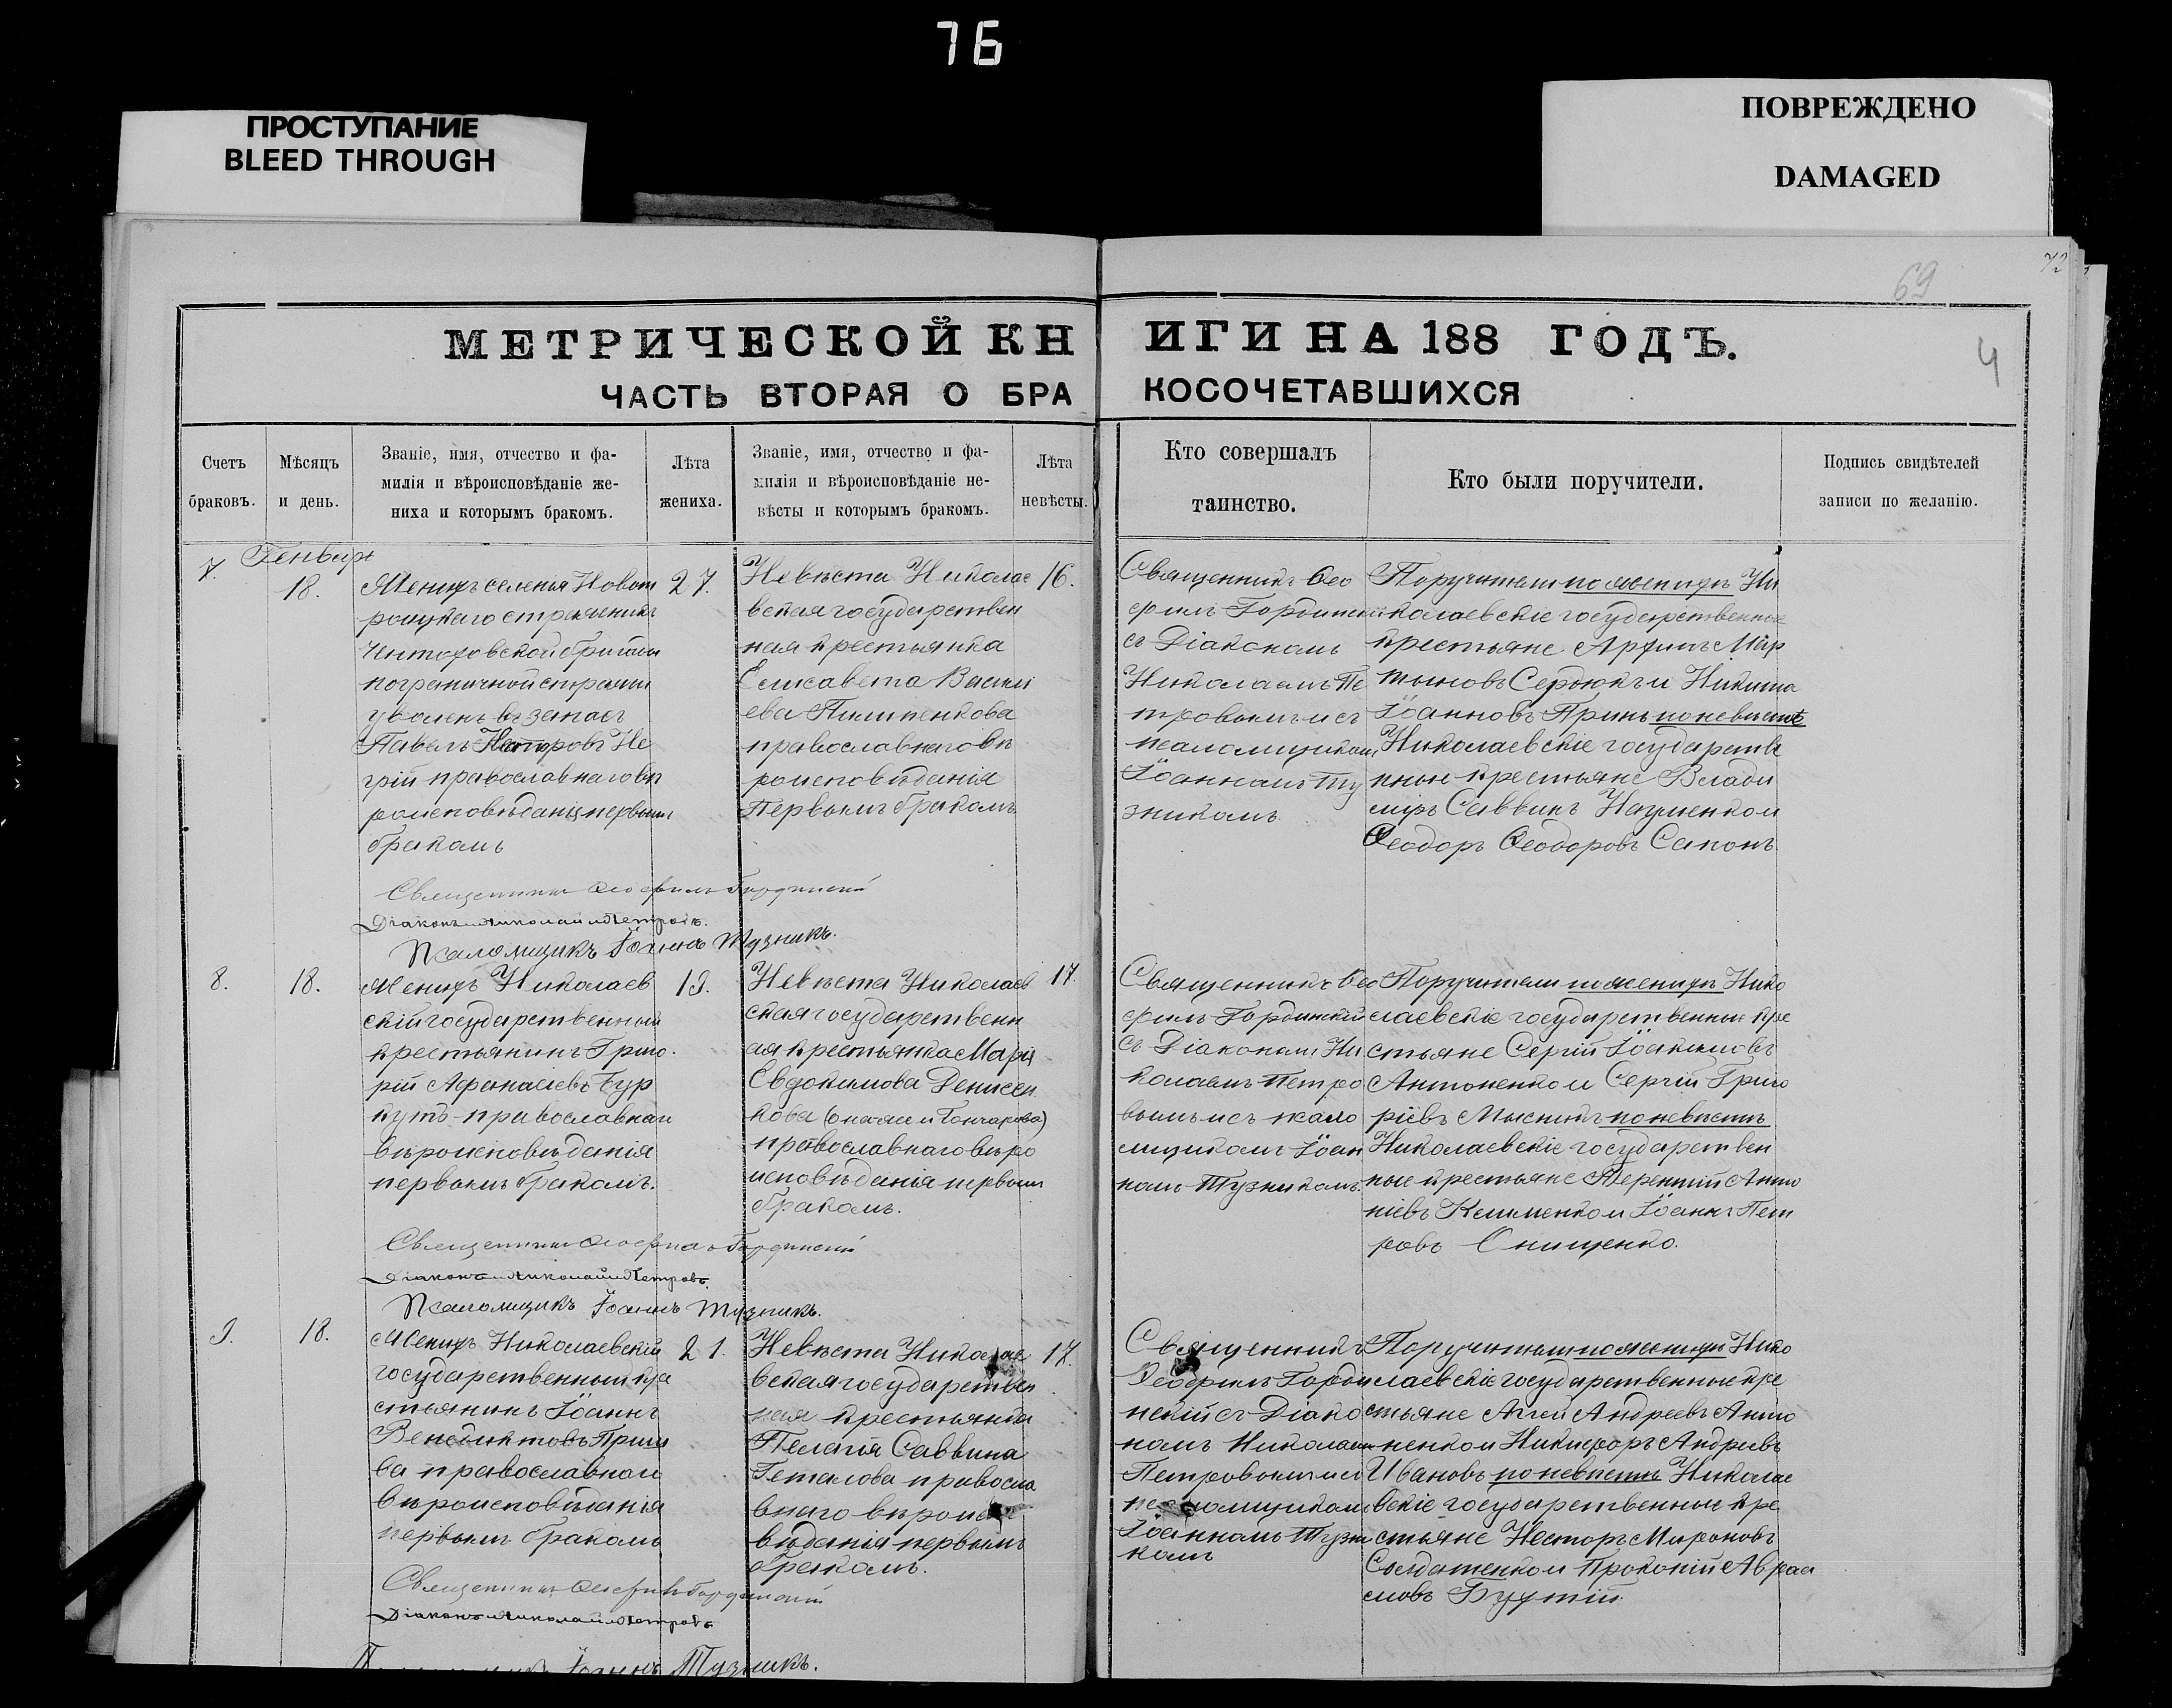 76
ПРОСТУПАНИЕ
BLEED THROUGH
ПОВРЕЖДЕНО
DAMAGED
72
69
4
МЕТРИЧЕСКОЙ КНИГИ НА 188 ГОДЪ.
ЧАСТЬ ВТОРАЯ О БРАКОСОЧЕТАВШИХСЯ
Счетъ браковъ.
Мѣсяцъ и день.
Званіе, имя, отчество и фа-
милія и вѣроисповѣданіе же-
ниха и которымъ бракомъ.
Лѣта жениха.
Званіе, имя, отчество и фа-
милія и вѣроисповѣданіе не-
вѣсты и которымъ бракомъ.
Лѣта невѣсты.
Кто совершалъ
таинство.
Кто были поручители.
Подпись свидѣтелей
записи по желанію.
7.
Генварь
18.
Женихъ селенья Новот
роицкаго стражникъ
пограничной стражи
уволенъ въ запасъ
Павелъ Не
грій православнаго вѣ
роисповѣданія первымъ
бракомъ
27.
Невѣста Николае
вская государствен
ная крестьянка
Елисавета Васили
ева Пилипенкова
православнаго вѣ
роисповѣданія
Первымъ бракомъ.
16.
Священникъ Ѳео
филъ Гординскій
съ Діакономъ
Николаемъ Пе
тровымъ и съ
псаломщикомъ
Іоанномъ Ту
зникомъ
Поручители по женихѣ Ни
колаевскіе государственные
крестьяне Мар
тыновъ Сердюкъ и Никита
Іоанновъ по невѣстѣ
Николаевскіе государстве
нные крестьяне Влади
міръ Саввинъ Науменко и
Ѳеодоръ Ѳеодоровъ Сапонъ
Священникъ Ѳеофилъ Гординскій
Діаконъ Николай Петровъ.
Псаломщикъ Іоаннъ Тузникъ.
8.
18.
Женихъ Николаев
скій государственный
крестьянинъ Григо
рій Афанасіевъ Бур
кутъ православнаго
вѣроисповѣданія
первымъ бракомъ.
19.
Невѣста Николаев
ская государственн
ая крестьянка Марія
Евдокимова Денисен
кова (она же и Гончарова)
православнаго вѣро
исповѣданія первымъ
бракомъ.
17.
Священникъ Ѳео
филъ Гординскій
съ Діакономъ Ни
колаемъ Петро
вымъ и съ псало
мщикомъ Іоан
номъ Тузникомъ.
Поручители по женихѣ Нико
лаевскіе государственные кре
стьяне Сергій Іоакимовъ
Антоненко и Сергій Григо
ріевъ по невѣстѣ
Николаевскіе государствен
ные крестьяне Терентій Анто
ніевъ Клименко и Іоаннъ Пет
ровъ Онищенко.
Священникъ Ѳеофилъ Гординскій
Діаконъ Николай Петровъ.
Псаломщикъ Іоаннъ Тузникъ.
9.
18.
Женихъ Николаевскій
государственный кре
стьянинъ Іоаннъ
Венедиктовъ
православнаго
вѣроисповѣданія
первымъ бракомъ
21.
Невѣста Николае
вская государствен
ная крестьянка
Пелагія Саввина
Геталова правосла
внаго вѣроиспо
вѣданія первымъ
бракомъ.
17.
Священникъ
Ѳеофилъ Горди
нскій съ Діако
номъ Николаемъ
Петровымъ и съ
псаломщикомъ
Іоанномъ Тузни
комъ
Поручители по женихѣ Нико
лаевскіе государственные кре
стьяне Аггей Андреевъ Анто
ненко и Никифоръ Андреевъ
Ивановъ по невѣстѣ Николае
вскіе государственные кре
стьяне Несторъ Мироновъ
Солдатенко и Прокопій Авраа
мовъ
Священникъ Ѳеофилъ Гординскій
Діаконъ Николай Петровъ
Іоаннъ Тузникъ.